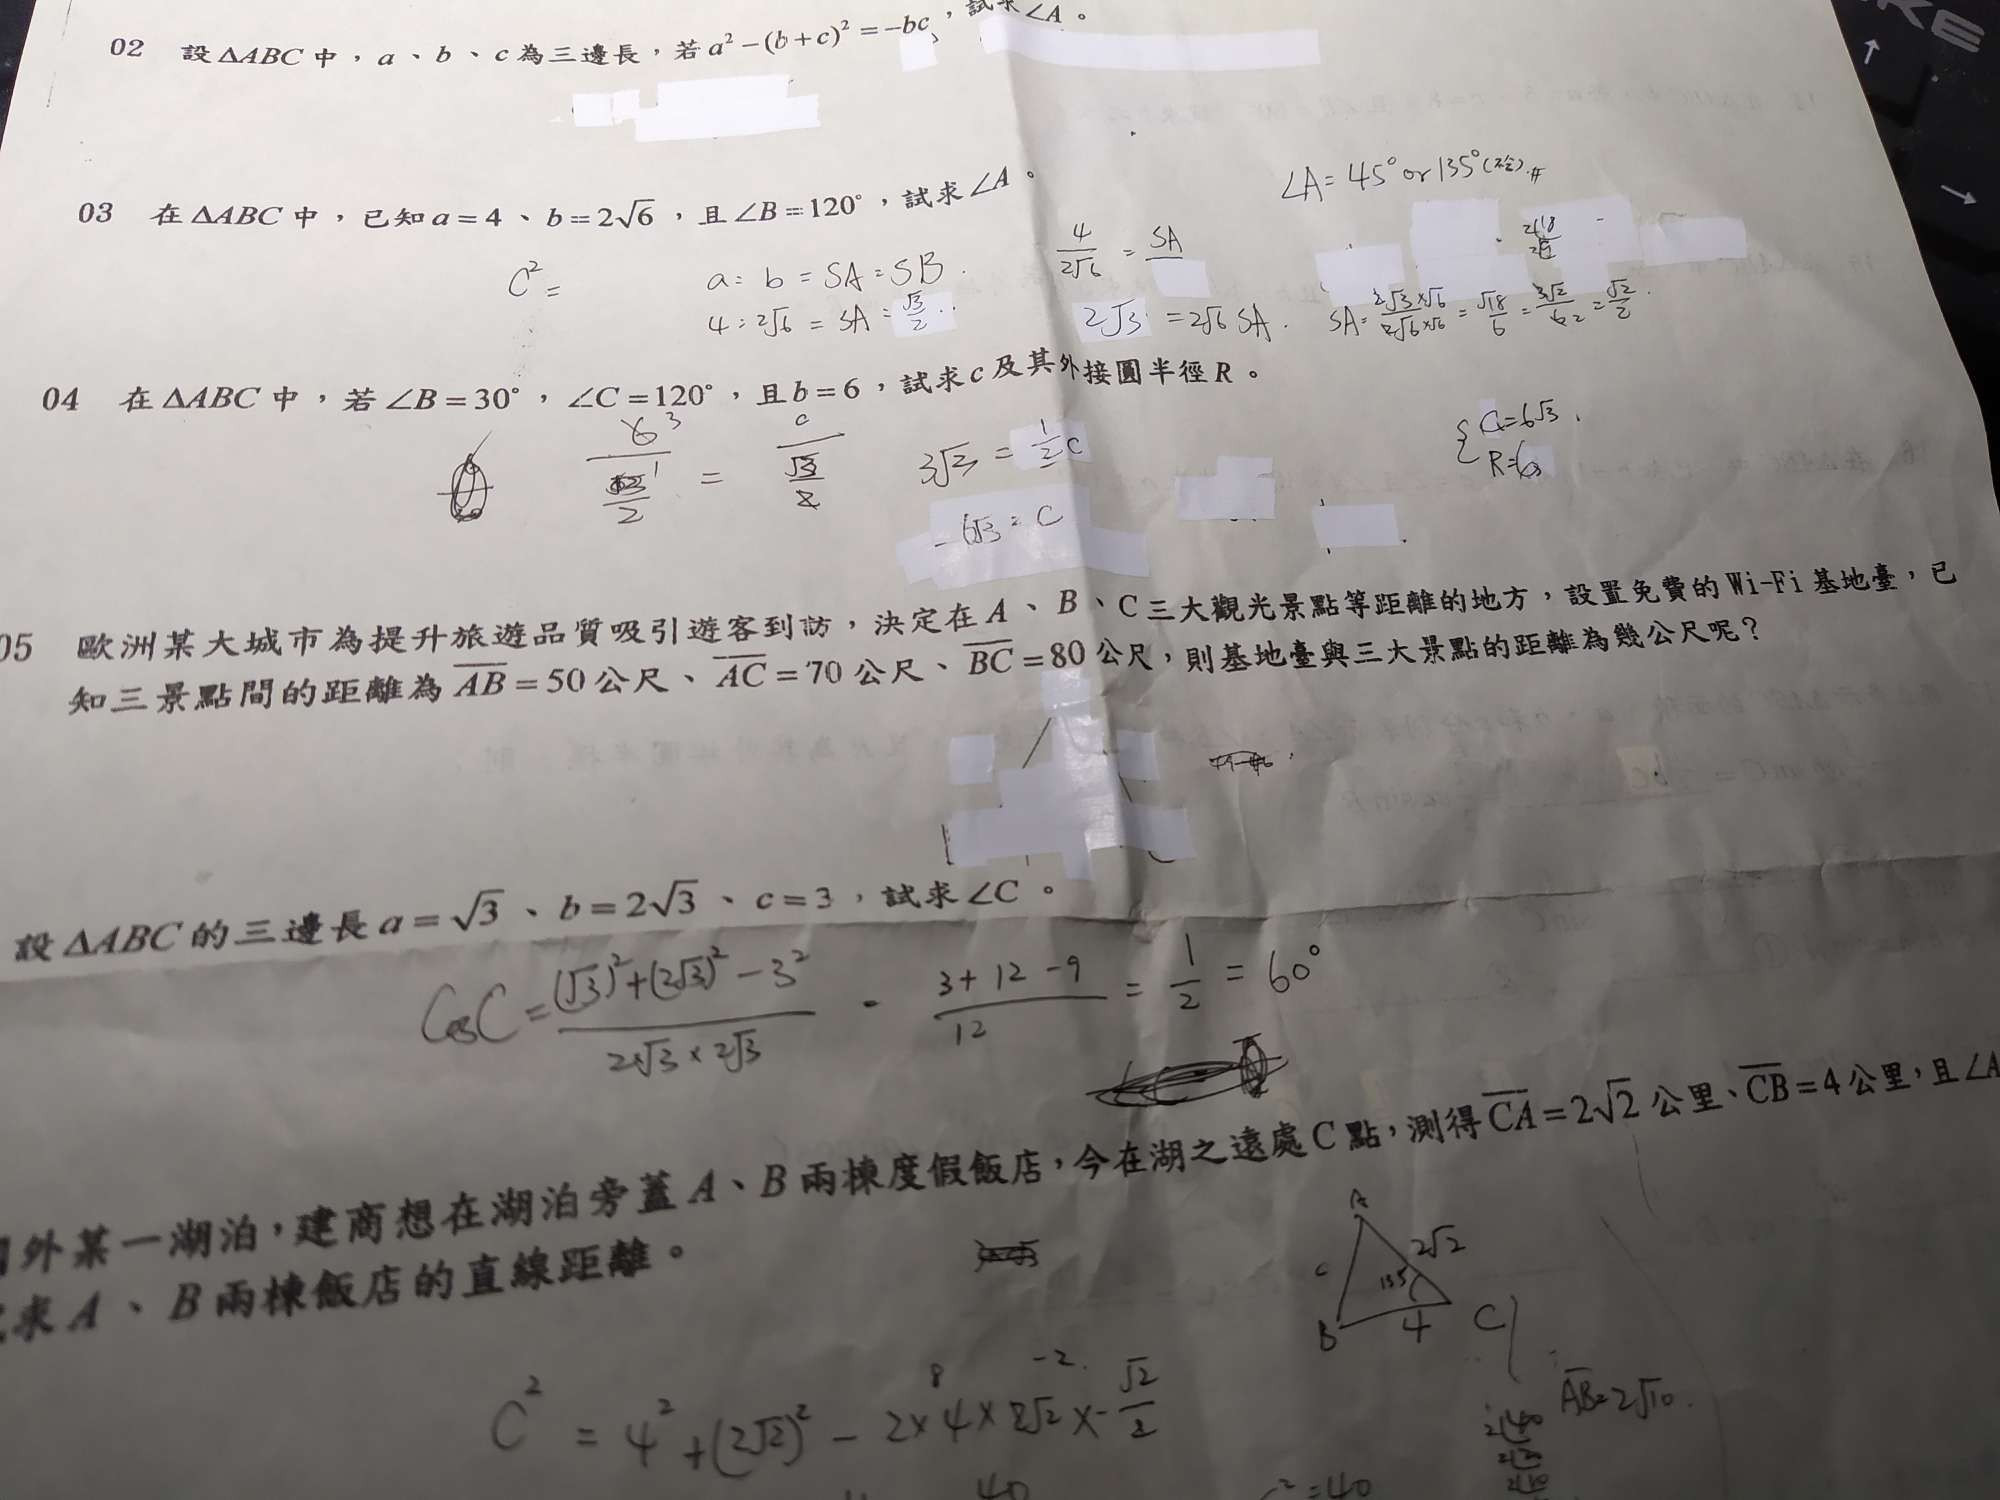 02 設ΔABC中,a、b、c為三邊長,若a²-(b+c)²=-bc,試求∠A。
03 在ΔABC中,已知a=4、b=2√6,且∠B=120°,試求∠A。
∠A=45° or 135°(不合).#
C²=
a:b=SA=SB.
4/2√6 = SA/
4:2√6=SA=√3/2..
2√3=2√6 SA.
SA=2√3×√6/2√6×√6=√18/6=3√2/6 2=√2/2.
04 在ΔABC中,若∠B=30°,∠C=120°,且b=6,試求c及其外接圓半徑R。
3√3=1/2 C
-6√3=C
05 歐洲某大城市為提升旅遊品質吸引遊客到訪,決定在A、B、C三大觀光景點等距離的地方,設置免費的Wi-Fi基地臺,已
知三景點間的距離為AB=50公尺、AC=70公尺、BC=80公尺,則基地臺與三大景點的距離為幾公尺呢?
設ΔABC的三邊長a=√3、b=2√3、c=3,試求∠C。
CosC=(√3)²+(2√3)²-3²/2√3×2√3 - 3+12-9/12=1/2=60°
外某一湖泊,建商想在湖泊旁蓋A、B兩棟度假飯店,今在湖之遠處C點,測得CA=2√2公里、CB=4公里,且∠A
求A、B兩棟飯店的直線距離。
A
2√2
c
135
B
4
C
8 -2.
C²=4²+(2√2)²-2×4×2√2×-√2/2
AB=2√10.
2 40
2 20
2 10
40
c²=40